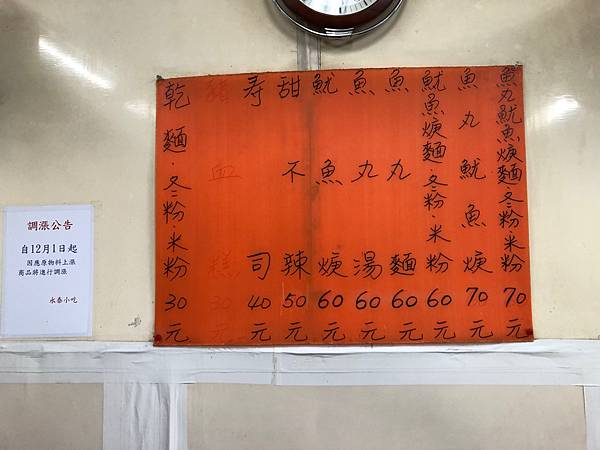 魚丸魷魚焿麵·冬粉·米粉70元
魚丸魷魚焿70元
魷魚焿麵·冬粉·米粉60元
魚丸麵60元
魚丸湯60元
魷魚焿60元
甜不辣50元
寿司40元
豬血糕30元
乾麵·冬粉·米粉30元
調漲公告
自12月1日起
因應原物料上漲
商品將進行調漲
永泰小吃